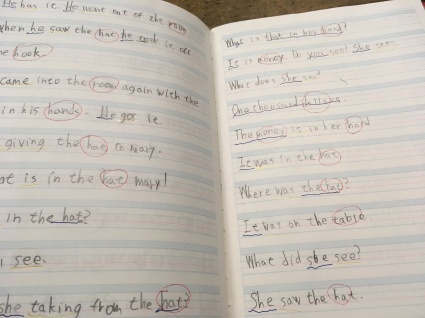 He has it. He went out of the room
When he saw the hat, he took it off
the hook.
came into the room again with the
in his hands. He got it
giving the hat to Mary.
at is in the hat mary!
in the hat?
see.
she taking from the hat?
What is that in her hand?
It is money. Do you see? She sees
What does she see?
One thousand
The money is in her hand
It was in the hat
Where was the hat?
It was on the table.
What did she see?
She saw the hat.